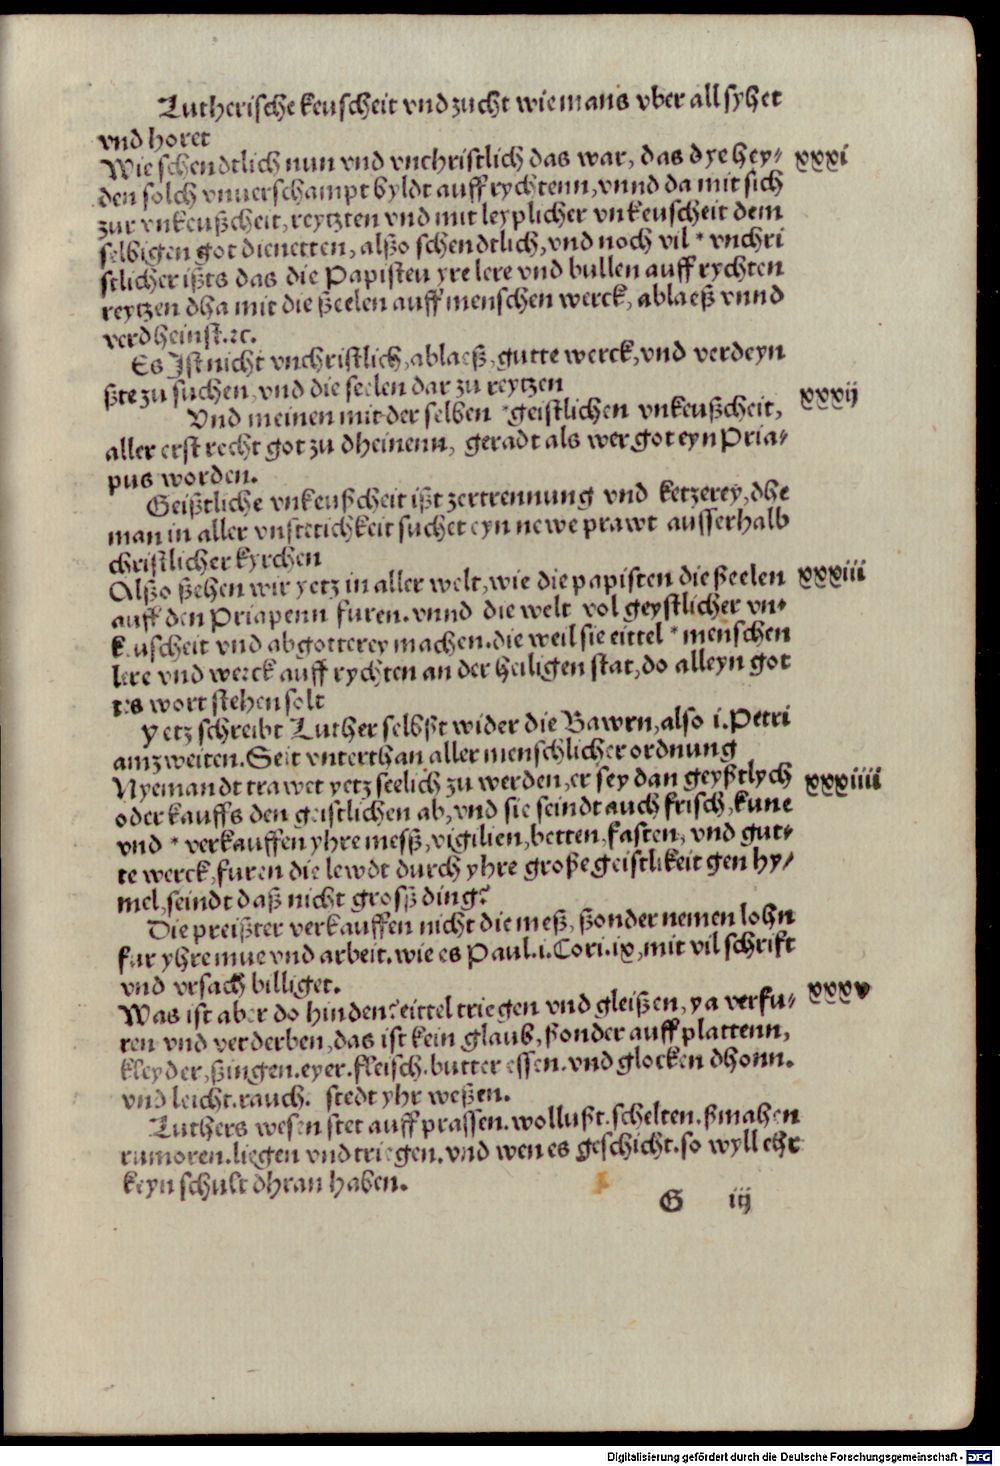 Lutherische keuscheit vnd zucht wie mans vber all syhet
vnd horet
Wie schendtlich nun vnd vnchristlich das war, das dye hey⸗ xxxi
den solch vnuerschampt byldt auff rychtenn, vnnd da mit sich
zur vnkeußcheit, reytzten vnd mit leyplicher vnkeuscheit dem
selbigen got dienetten, alßo schendtlich, vnd noch vil * vnchri
stlicher ißts das die Papisten yre lere vnd bullen auff rychten
reytzen dha mit die ßeelen auff menschen werck, ablaeß vnnd
verdheinst.ꝛc.
Es Jst nicht vnchristlich, ablaeß, gutte werck, vnd verdeyn
ßte zu suchen, vnd die seelen dar zu reytzen
Vnd meinen mit der selben *geistlichen vnkeußcheit, xxxij
aller erst recht got zu dheinenn, geradt als wer got eyn Pria⸗
pus worden.
Geißtliche vnkeußcheit ißt zertrennung vnd ketzerey, dhe
man in aller vnstetichkeit suchet eyn newe prawt ausserhalb
christlicher kyrchen
Alßo ßehen wir yetz in aller welt, wie die papisten die ßeelen xxxiii
auff den Priapenn furen. vnnd die welt vol geystlicher vn⸗
keuscheit vnd abgotterey machen. die weil sie eittel * menschen
lere vnd werck auff rychten an der heiligen stat, do alleyn got
tes wort stehen solt
Yetz schreibt Luther selbßt wider die Bawrn, also i. Petri
am zweiten. Seit vnterthan aller menschlicher ordnung
Nyemandt trawet yetz seelich zu werden, er sey dan geyßtlych xxxiiii
oder kauffs den geistlichen ab, vnd sie seindt auch frisch, kune
vnd * verkauffen yhre messß, vigilien, betten, fasten, vnd gut⸗
te werck, furen die lewdt durch yhre große geistlikeit gen hy⸗
mel, seindt daß nicht grosß ding?
Die preißter verkauffen nicht die meß, ßonder nemen lohn
fur yhre mue vnd arbeit. wie es Paul. i. Cori. ix, mit vil schrift
vnd vrsach billiget.
Was ist aber do hinden? eittel triegen vnd gleißen, ya verfu⸗ xxxv
ren vnd verderben, das ist kein glaub, ßonder auff plattenn,
kleyder, ßingen. eyer. fleisch. butter essen. vnd glocken dhonn.
vnd leicht. rauch. stedt yhr weßen.
Luthers wesen stet auff prassen. wollußt. schelten. ßmahen
rumoren. liegen vnd triegen. vnd wen es geschicht. so wyll ehr
keyn schult dhran haben.
G iij
Digitalisierung gefördert durch die Deutsche Forschungsgemeinschaft - DFG